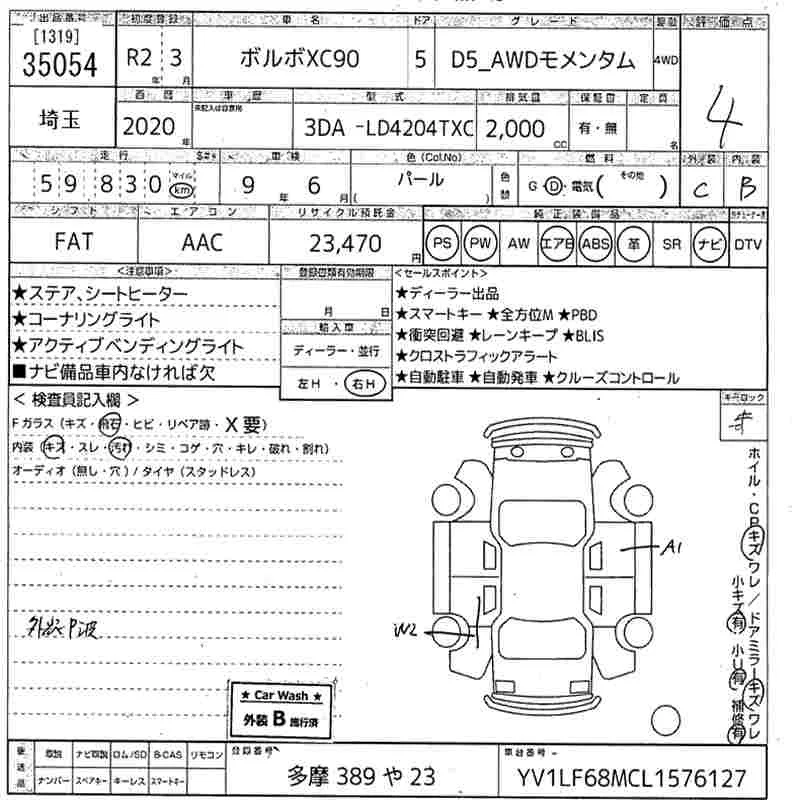 出品番号 初度登録 車名 ドア グレード 駆動 評価点
[1319]
35054 R2年 3月 ボルボXC90 5 D5_AWDモメンタム 4WD 4
埼玉 西暦 車歴 型式 排気量 保証書 定員
未記入は自家用
2020年 3DA -LD4204TXC 2,000CC 有・無
走行 車検 色(Col.No) 色替 燃料 外装 内装
59830 マイル km 9年 6月 パール ( ) G D・電気( その他 ) C B
シフト エアコン リサイクル預託金 純正装備品
FAT AAC 23,470円 PS PW AW エアB ABS 革 SR ナビ DTV
<注意事項> 登録書類有効期限 <セールスポイント>
★ステア、シートヒーター
★コーナリングライト
★アクティブベンディングライト
■ナビ備品車内なければ欠
月 日
輸入車
ディーラー・並行
左H・右H
★ディーラー出品
★スマートキー ★全方位M ★PBD
★衝突回避 ★レーンキープ ★BLIS
★クロストラフィックアラート
★自動駐車 ★自動発車 ★クルーズコントロール
< 検査員記入欄 >
Fガラス (キズ・飛石・ヒビ・リペア跡・X要)
内装 (キズ・スレ・汚れ・シミ・コゲ・穴・キレ・破れ・割れ)
オーディオ (無し・穴) / タイヤ (スタッドレス)
キーロック
ホイル・CPキズワレ/ドアミラーキズワレ
小キズ有 小U有 補修有
A1
W2
★ Car Wash ★
外装 B 施行済
後送品 取説 ナビ取説 ロム/SD B-CAS リモコン 登録番号 車台番号
ナンバー スペアキー キーレス スマートキー
多摩 389 や 23 YV1LF68MCL1576127